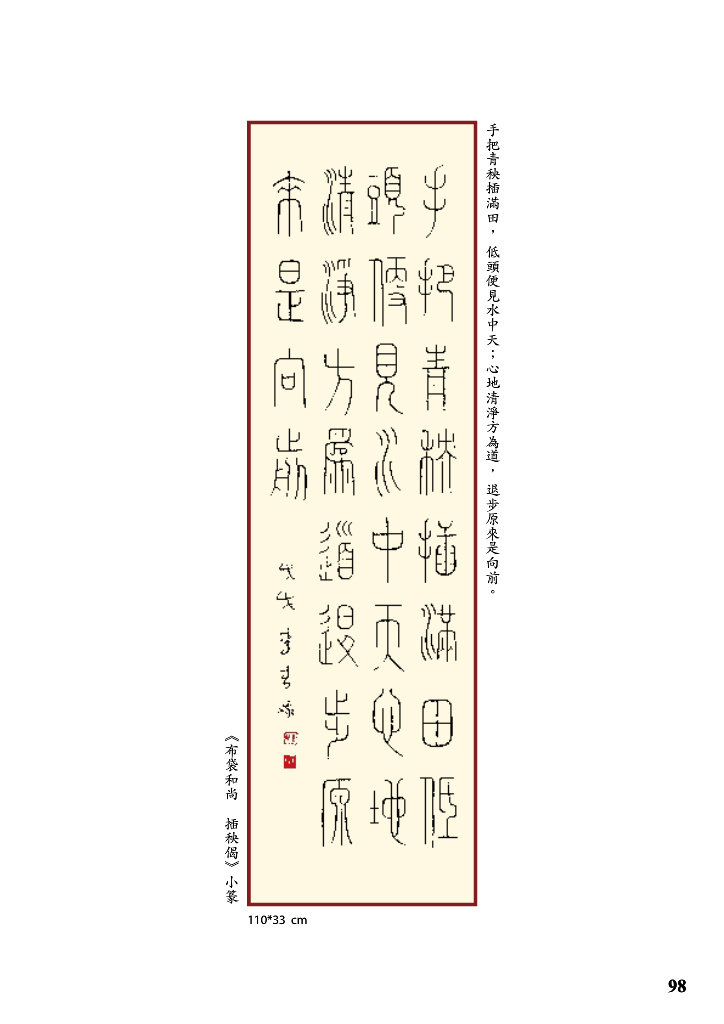 手把青秧插滿田， 低頭便見水中天；心地清淨方為道， 退步原來是向前。
手把青秧插滿田低
頭便見水中天心地
清淨方為道退步原
來是向前
戊戌 李春
《布袋和尚 插秧偈》小篆
110*33 cm
98